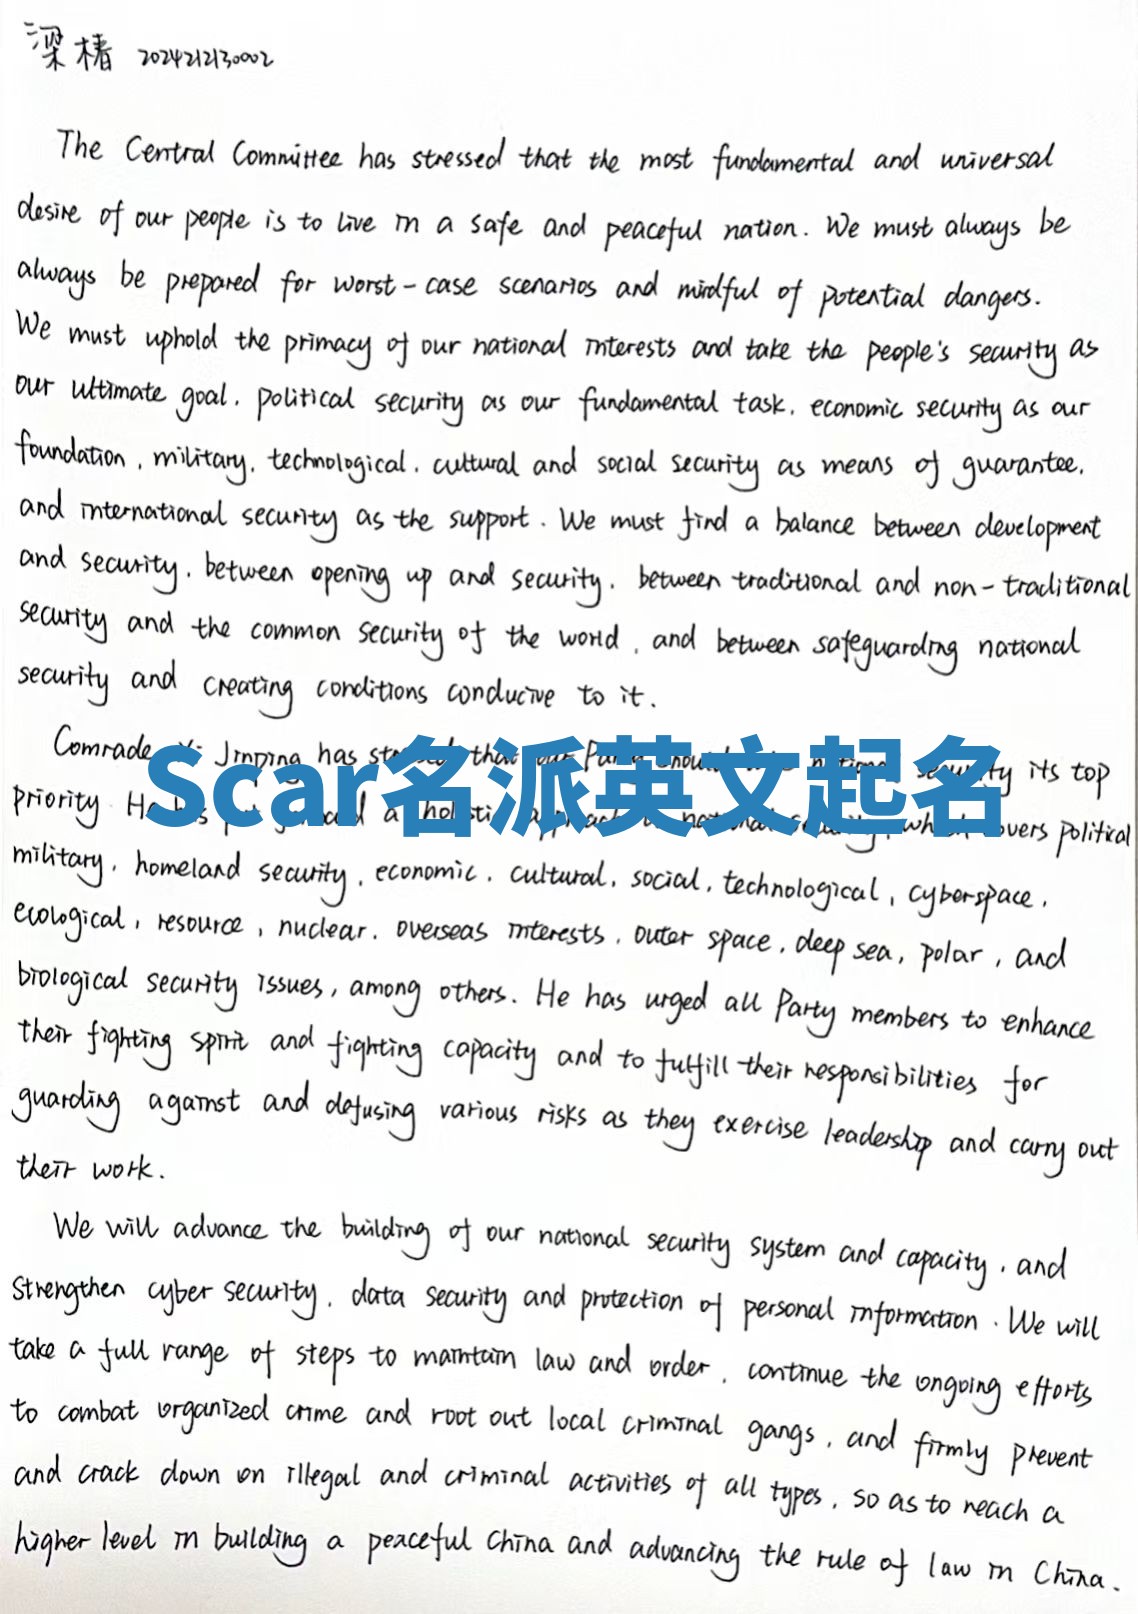 梁椿 2024212130002
The Central Committee has stressed that the most fundamental and universal
desire of our people is to live in a safe and peaceful nation. We must always be
always be prepared for worst-case scenarios and mindful of potential dangers.
We must uphold the primacy of our national interests and take the people's security as
our ultimate goal, political security as our fundamental task, economic security as our
foundation, military, technological, cultural and social security as means of guarantee,
and international security as the support. We must find a balance between development
and security, between opening up and security, between traditional and non-traditional
security and the common security of the world, and between safeguarding national
security and creating conditions conducive to it.
Comrade Xi Jinping has stressed that our Party should national security its top
Scar名派英文起名
priority. He has a holistic approach national security, which covers political
military, homeland security, economic, cultural, social, technological, cyberspace,
ecological, resource, nuclear, overseas interests, outer space, deep sea, polar, and
biological security issues, among others. He has urged all Party members to enhance
their fighting spirit and fighting capacity and to fulfill their responsibilities for
guarding against and defusing various risks as they exercise leadership and carry out
their work.
We will advance the building of our national security system and capacity, and
strengthen cyber security, data security and protection of personal information. We will
take a full range of steps to maintain law and order, continue the ongoing efforts
to combat organized crime and root out local criminal gangs, and firmly prevent
and crack down on illegal and criminal activities of all types, so as to reach a
higher level in building a peaceful China and advancing the rule of law in China.